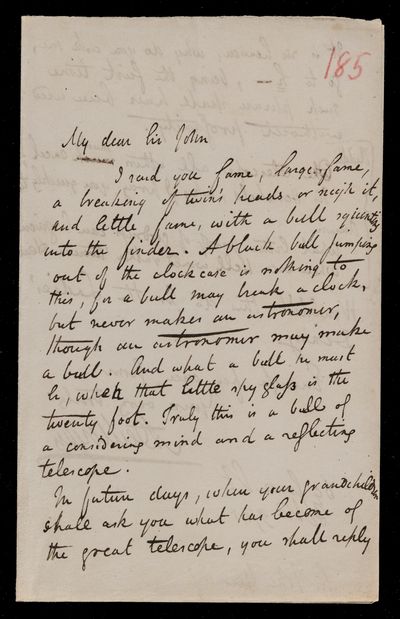 185
My dear Sir John
I send you fame, large fame,
a breaking of twin's heads or nigh it,
and little fame, with a bull squinting
into the finder. A black bull jumping
out of the clock case is nothing to
this, for a bull may break a clock,
but never makes an astronomer,
though an astronomer may make
a bull. And what a bull he must
be, when that little spy glass is the
twenty foot. Truly this is a bull of
a considering mind and a reflecting
telescope.
In future days, when your grandchildren
shall ask you what has become of
the great telescope, you shall reply